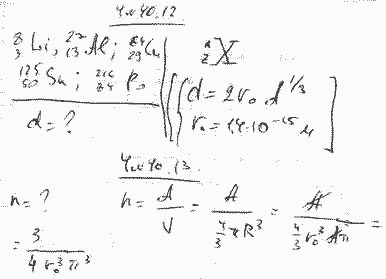 4.и 40.12
⁸₃Li, ²⁷₁₃Al; ⁶⁴₂₉Cu
¹²⁵₅₀Sn; ²¹⁶₈₄Po
ᴬ_Z X
d = 2r₀ A^{1/3}
r₀ = 1,4·10⁻¹⁵ м
d = ?
4.и 40.13
n = ?
n = A/V = A/(4/3 π R³) = A/(4/3 r₀³ A π) =
= 3/(4 r₀³ π³)